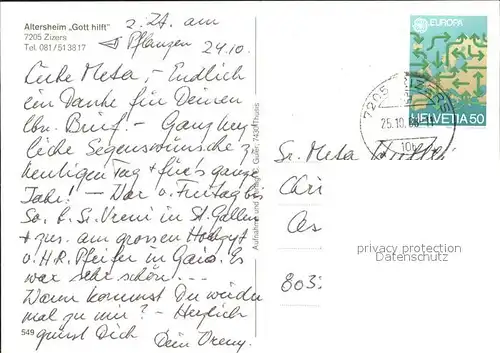 Altersheim „Gott hilft"
7205 Zizers
Tel. 081/51 38 17
z. Zt. am
Pflanzen 24.10.
Liebe Meta, - Endlich
ein Danke für Deinen
lbn. Brief. - Ganz her
liche Segenswünsche z.
heutigen Tag + für's ganze
Jahr! - War v. Freitag bis
So. b. Sr. Vreni in St. Gallen
+ zus. am grossen
u. H.R. Pfeifer in Es
war sehr schön...
Wann kommst Du wieder
mal zu mir? - Herzlich
grüsst Dich
Dein Vreny.
549
Aufnahme und Verlag C. Guler, 7430 Thusis
EUROPA
HELVETIA 50
7205 ZIZERS
25.10.88
Sr. Meta
803
privacy protection
Datenschutz